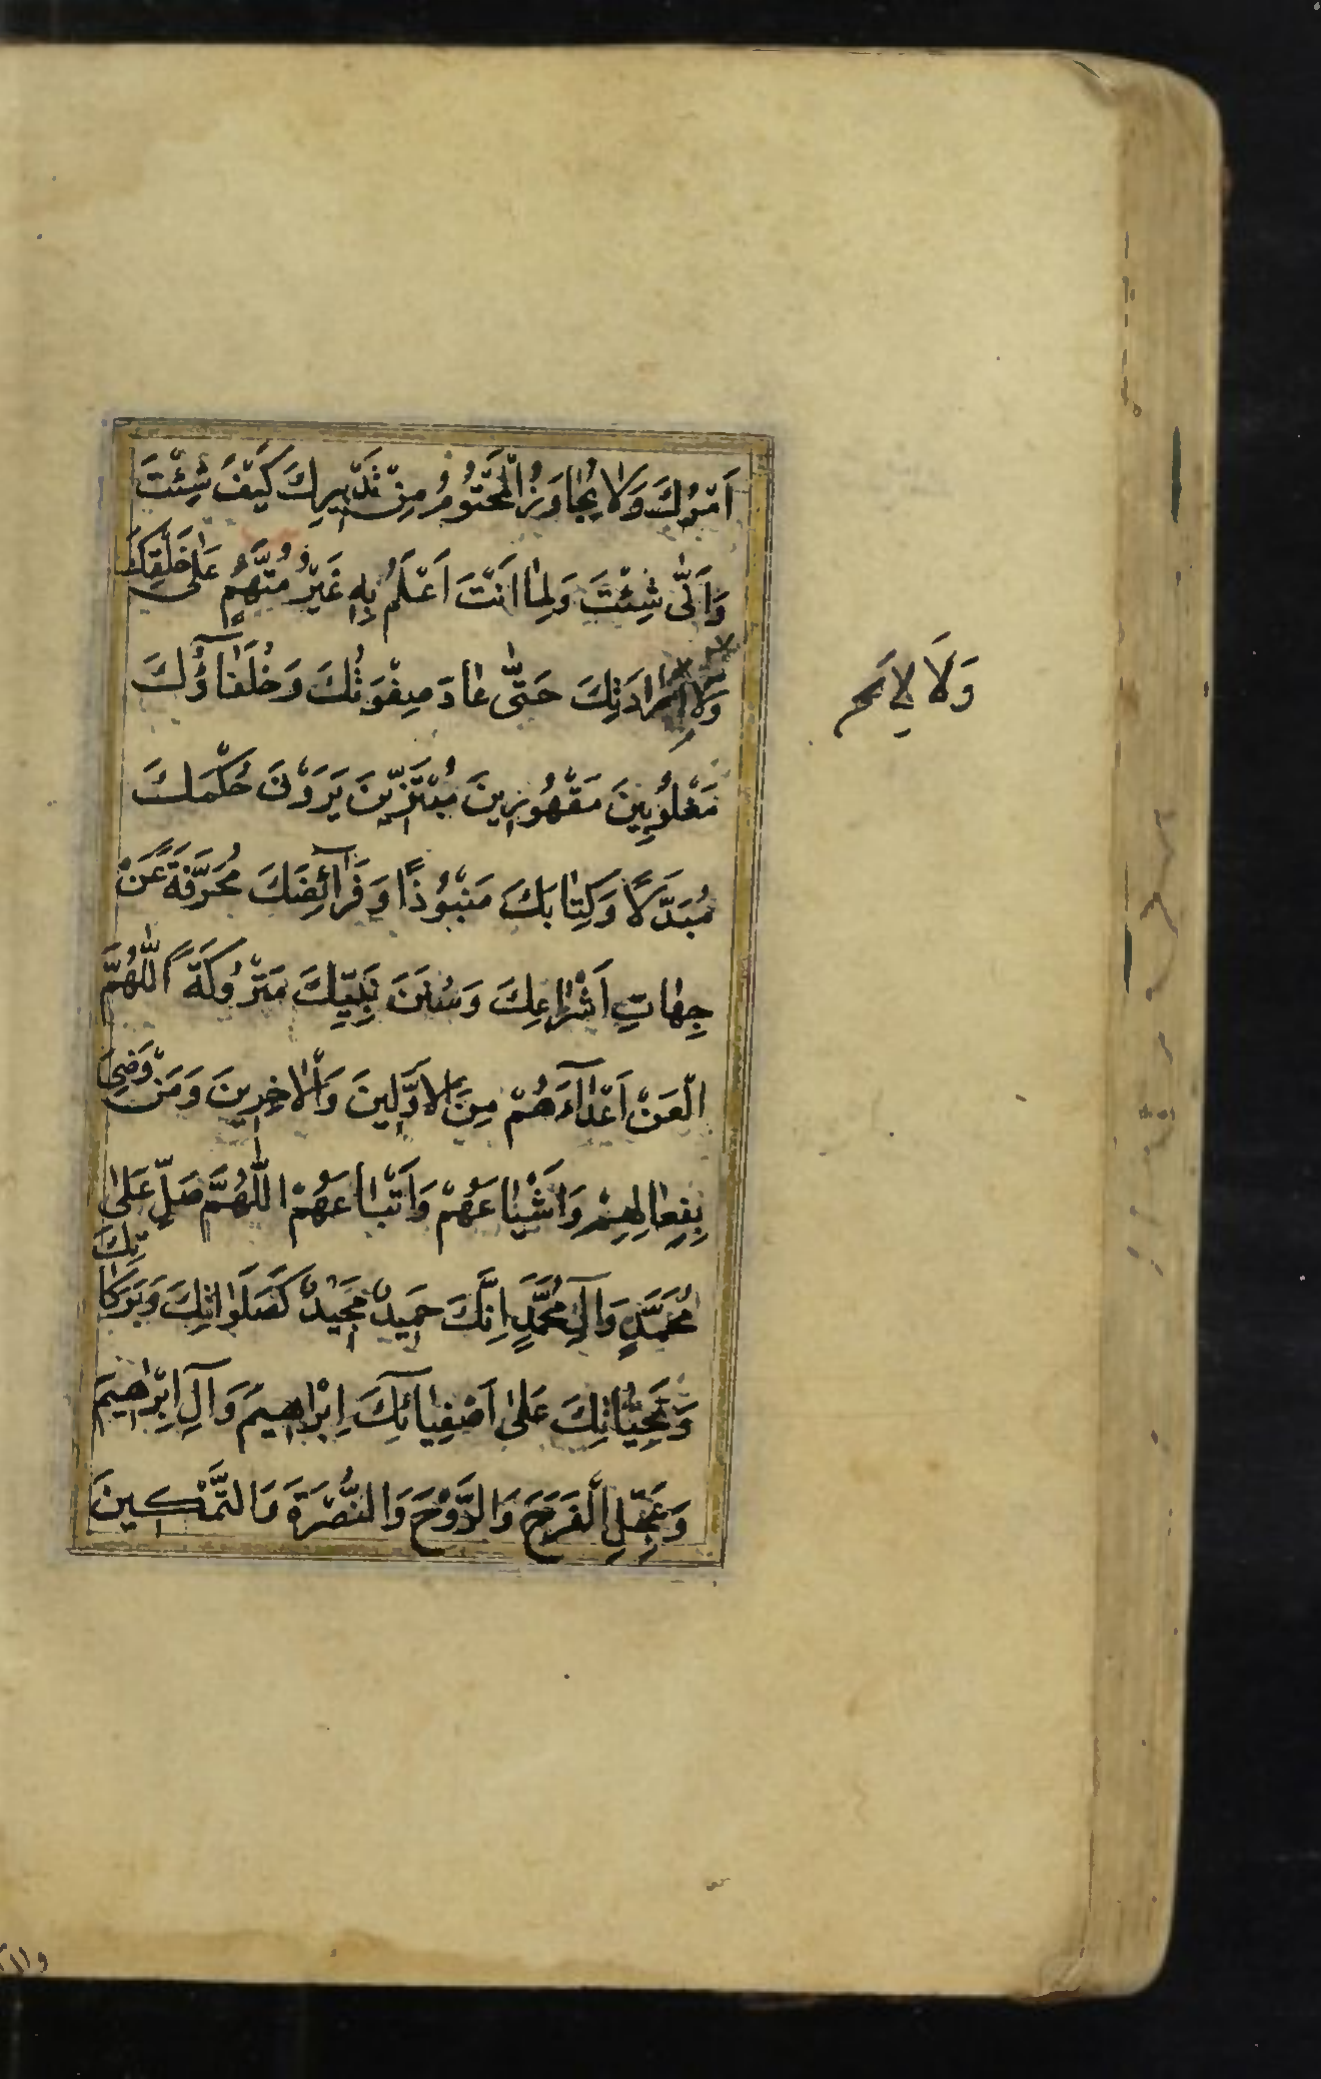 اَمْرُكَ وَلَا يُجَاوَزُ الْمَحْتُومُ مِنْ تَدْبِيرِكَ كَيْفَ شِئْتَ
وَاَنّٰى شِئْتَ وَلِمَا اَنْتَ اَعْلَمُ بِهِ غَيْرُ مُتَّهَمٍ عَلٰى خَلْقِكَ
وَلَا لِاِرَادَتِكَ حَتّٰى عَادَ صِفْوَتُكَ وَخُلَفَآؤُكَ
وَلَا لِاَ
مَغْلُوبِينَ مَقْهُورِينَ مُبْتَزِّينَ يَرَوْنَ حُكْمَكَ
مُبَدَّلًا وَكِتَابَكَ مَنْبُوذًا وَفَرَآئِضَكَ مُحَرَّفَةً عَنْ
جِهَاتِ اَشْرَاعِكَ وَسُنَنَ نَبِيِّكَ مَتْرُوكَةً اَللّٰهُمَّ
الْعَنْ اَعْدَآءَهُمْ مِنَ الْاَوَّلِينَ وَالْاٰخِرِينَ وَمَنْ رَضِىَ
بِفِعَالِهِمْ وَاَشْيَاعَهُمْ وَاَتْبَاعَهُمْ اَللّٰهُمَّ صَلِّ عَلٰى
مُحَمَّدٍ وَآلِ مُحَمَّدٍ اِنَّكَ حَمِيدٌ مَجِيدٌ كَصَلَوَاتِكَ وَبَرَكَاتِكَ
وَتَحِيَّاتِكَ عَلٰى اَصْفِيَائِكَ اِبْرَاهِيمَ وَآلِ اِبْرٰهِيمَ
وَعَجِّلِ الْفَرَجَ وَالرَّوْحَ وَالنُّصْرَةَ وَالتَّمْكِينَ